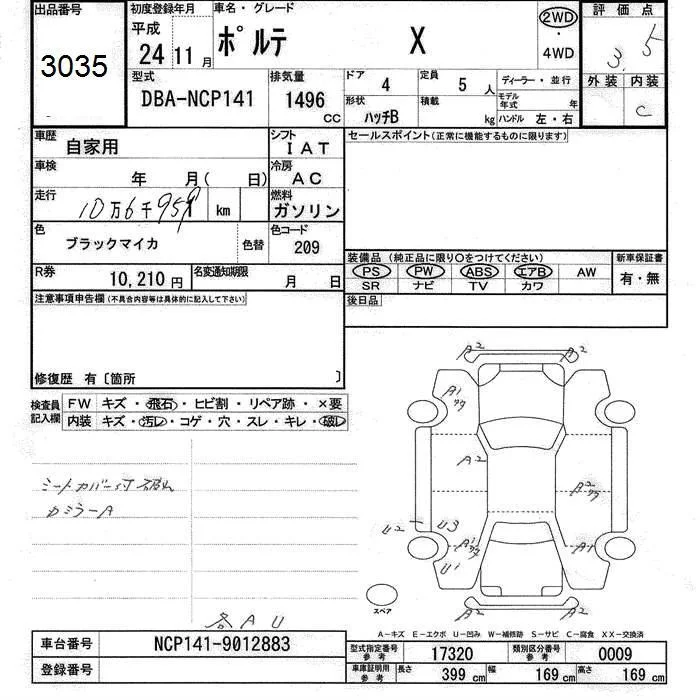 出品番号 初度登録年月 車名・グレード 2WD 評価点
平成 ・
3035 24 11月 ポルテ X 4WD 3.5
型式 排気量 ドア 4 定員 5人 ディーラー・並行 外装 内装
DBA-NCP141 1496cc 形状 ハッチB 積載 kg モデル年式 年 C
ハンドル 左・右
車歴 自家用 シフト IAT セールスポイント(正常に機能するものに限ります)
車検 年 月( 日) 冷房 AC
走行 10万6千959 km 燃料 ガソリン
色 ブラックマイカ 色替 色コード 209
装備品(純正品に限り○をつけてください) 新車保証書
R券 10,210円 名変通知期限 月 日 PS PW ABS エアB AW 有・無
SR ナビ TV カワ
注意事項申告欄(不具合内容等は具体的に記入して下さい) 後日品
修復歴 有〔箇所 〕
検査員記入欄 FW キズ・飛石・ヒビ割・リペア跡・×要
内装 キズ・汚レ・コゲ・穴・スレ・キレ・破レ
シートカバー付 破れ
カミラーA
各AU
A2 A2
A1
A2 A2
U2 U3
A1 A1
U1
スペア
A-キズ E-エクボ U-凹み W-補修跡 S-サビ C-腐食 XX-交換済
車台番号 NCP141-9012883 型式指定番号参考 17320 類別区分番号参考 0009
登録番号 車庫証明用参考 長さ 399cm 幅 169cm 高さ 169cm